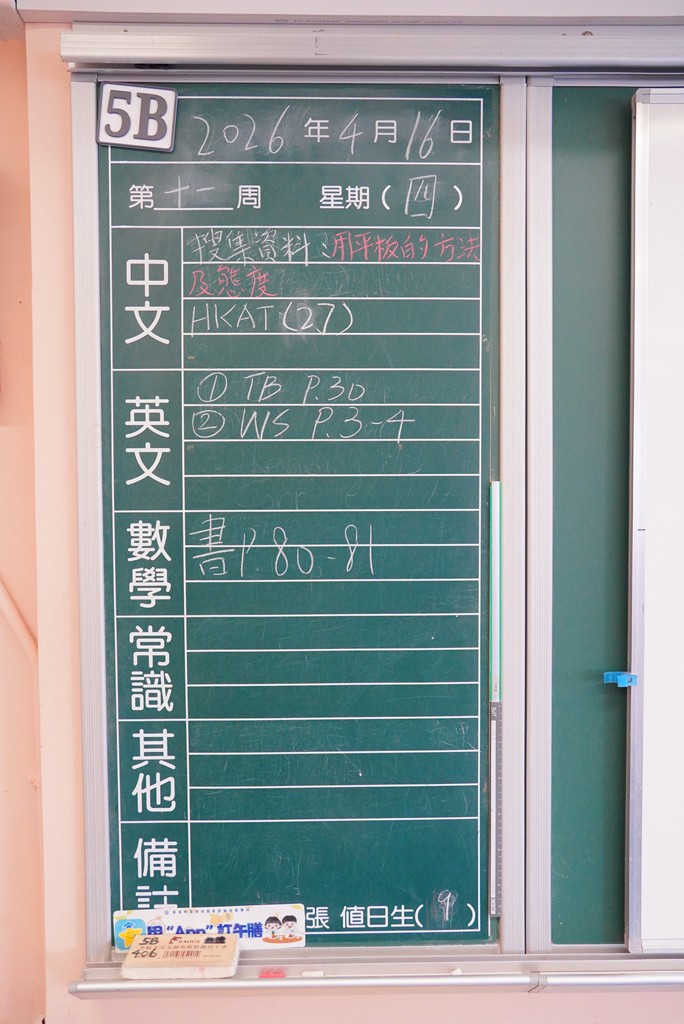 5B
2026年4月16日
第十一周 星期(四)
中文
搜集資料:用平板的方法
及態度
HKAT(27)
英文
① TB P.30
② WS P.3-4
數學
書P.80-81
常識
其他
備註
張 值日生(9)
用"App"訂午膳
5B
406